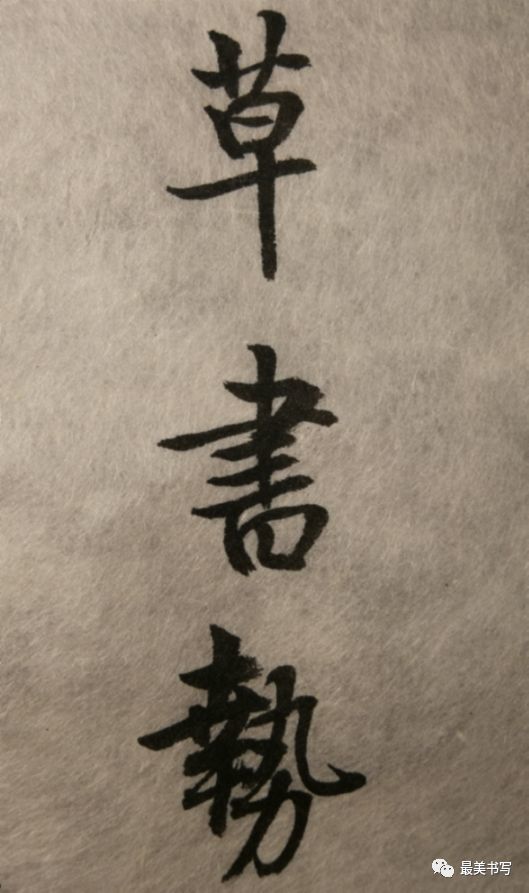 草書勢
最美书写